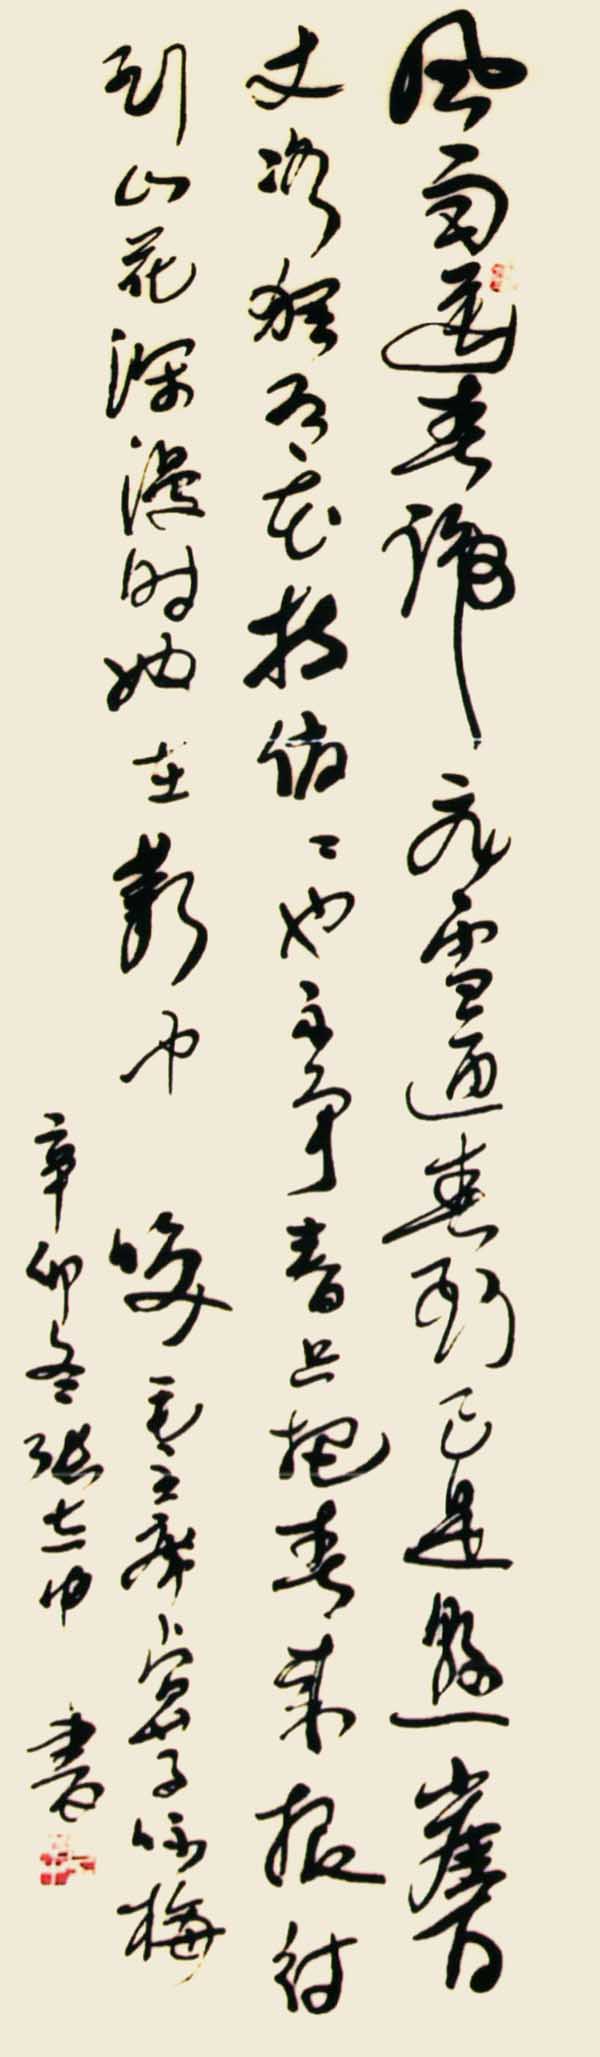 风雨送春归飞雪迎春到已是悬崖百
丈冰犹有花枝俏俏也不争春只把春来报待
到山花烂漫时她在丛中笑毛主席卜算子咏梅
辛卯冬张志中书